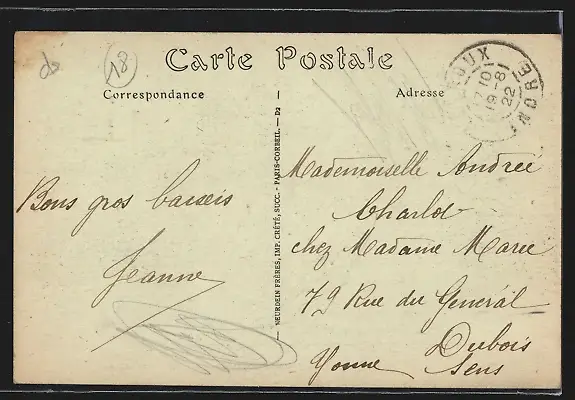 18
Carte Postale
Correspondance
Adresse
OUX
INDRE
17 10
19-8
22
Bons gros baisers
Jeanne
NEURDEIN FRÈRES, IMP. CRÉTÉ, SUCC. - PARIS-CORBEIL. — D2
Mademoiselle Andrée
Charlot
chez Madame Marie
79 Rue du Général
Dubois
Yonne Sens